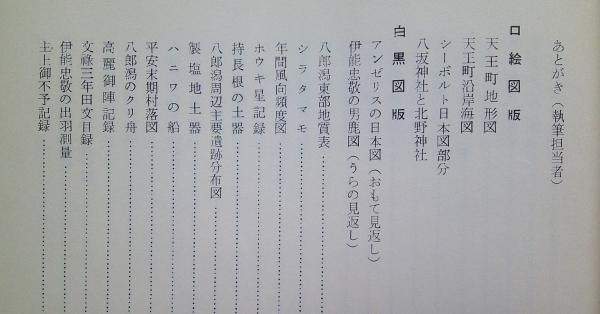 あとがき（執筆担当者）
口絵図版
天王町地形図
天王町沿岸海図
シーボルト日本図部分
八坂神社と北野神社
白黒図版
アンゼリスの日本図（おもて見返し）
伊能忠敬の男鹿図（うらの見返し）
八郎潟東部地質表…………………
シラタマモ…………………
年間風向頻度図…………………
ホウキ星記録…………………
持長根の土器…………………
八郎潟周辺主要遺跡分布図…………………
製塩地土器…………………
ハニワの船…………………
平安末期村落図…………………
八郎潟のクリ舟…………………
高麗御陣記録…………………
文禄三年田文目録…………………
伊能忠敬の出羽測量…………………
主上御不予記録…………………